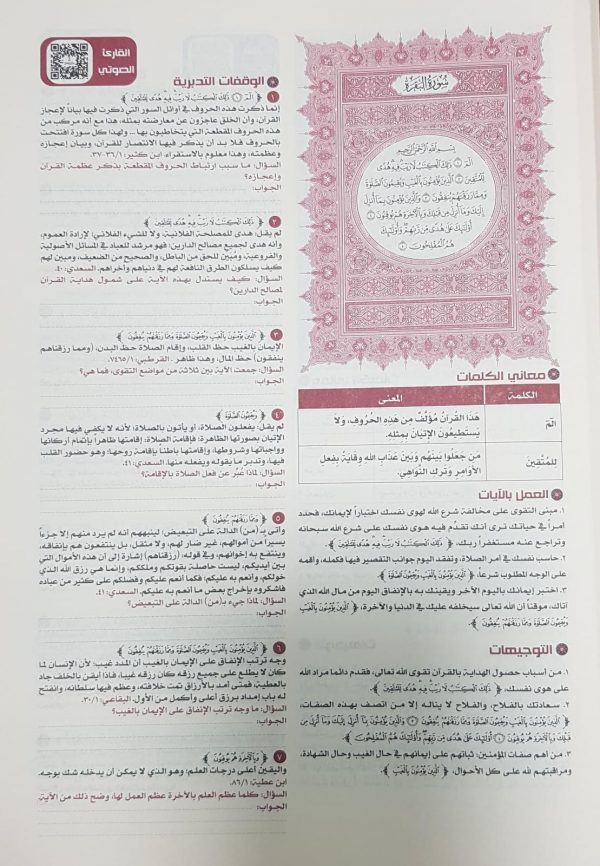 سُورَةُ البَقَرَةِ
بِسْمِ اللَّهِ الرَّحْمَٰنِ الرَّحِيمِ
الٓمٓ ١ ذَٰلِكَ الْكِتَابُ لَا رَيْبَ فِيهِ هُدًى
لِّلْمُتَّقِينَ ٢ الَّذِينَ يُؤْمِنُونَ بِالْغَيْبِ وَيُقِيمُونَ الصَّلَاةَ
وَمِمَّا رَزَقْنَاهُمْ يُنفِقُونَ ٣ وَالَّذِينَ يُؤْمِنُونَ بِمَا أُنزِلَ
إِلَيْكَ وَمَا أُنزِلَ مِن قَبْلِكَ وَبِالْآخِرَةِ هُمْ يُوقِنُونَ ٤
أُولَٰئِكَ عَلَىٰ هُدًى مِّن رَّبِّهِمْ وَأُولَٰئِكَ
هُمُ الْمُفْلِحُونَ ٥
معاني الكلمات
الكلمة المعنى
الٓمٓ هَذَا القُرآنُ مُؤَلَّفٌ مِن هَذِهِ الحُرُوفِ، وَلَا
يَستَطِيعُونَ الإِتيَانَ بِمِثلِهِ.
لِلمُتَّقِينَ مَن جَعَلُوا بَينَهُم وَبَينَ عَذَابِ اللهِ وِقَايَةً بِفِعلِ
الأَوَامِرِ وَتَركِ النَّوَاهِي.
العمل بالآيات
١. مبنى التقوى على مخالفة شرع الله لهوى نفسك اختباراً لإيمانك، فحدد
أمراً في حياتك ترى أنك تقدم فيه هوى نفسك على شرع الله سبحانه
وتراجع عنه مستغفراً ربك، ﴿ ذَٰلِكَ الْكِتَابُ لَا رَيْبَ فِيهِ هُدًى لِّلْمُتَّقِينَ ﴾.
٢. حاسب نفسك في أمر الصلاة، وتفقد اليوم جوانب التقصير فيها فكمله، وأقمه
على الوجه المطلوب شرعاً، ﴿ الَّذِينَ يُؤْمِنُونَ بِالْغَيْبِ وَيُقِيمُونَ الصَّلَاةَ وَمِمَّا رَزَقْنَاهُمْ يُنفِقُونَ ﴾.
٣. اختبر إيمانك باليوم الآخر ويقينك به بالإنفاق اليوم من مال الله الذي
آتاك، موقناً أن الله تعالى سيخلفه عليك في الدنيا والآخرة، ﴿ الَّذِينَ يُؤْمِنُونَ بِالْغَيْبِ
وَيُقِيمُونَ الصَّلَاةَ وَمِمَّا رَزَقْنَاهُمْ يُنفِقُونَ ﴾.
التوجيهات
١. من أسباب حصول الهداية بالقرآن تقوى الله تعالى، فقدم دائما مراد الله
على هوى نفسك، ﴿ ذَٰلِكَ الْكِتَابُ لَا رَيْبَ فِيهِ هُدًى لِّلْمُتَّقِينَ ﴾.
٢. سعادتك بالفلاح، والفلاح لا يناله إلا من اتصف بهذه الصفات،
﴿ الَّذِينَ يُؤْمِنُونَ بِالْغَيْبِ وَيُقِيمُونَ الصَّلَاةَ وَمِمَّا رَزَقْنَاهُمْ يُنفِقُونَ ٣ وَالَّذِينَ يُؤْمِنُونَ بِمَا أُنزِلَ إِلَيْكَ وَمَا أُنزِلَ مِن
قَبْلِكَ وَبِالْآخِرَةِ هُمْ يُوقِنُونَ ٤ أُولَٰئِكَ عَلَىٰ هُدًى مِّن رَّبِّهِمْ وَأُولَٰئِكَ هُمُ الْمُفْلِحُونَ ﴾
٣. من أهم صفات المؤمنين: ثباتهم على إيمانهم في حال الغيب وحال الشهادة،
ومراقبتهم لله على كل الأحوال، ﴿ الَّذِينَ يُؤْمِنُونَ بِالْغَيْبِ ﴾.
القارئ
الصوتي
الوقفات التدبرية
١ ﴿ الٓمٓ ١ ذَٰلِكَ الْكِتَابُ لَا رَيْبَ فِيهِ هُدًى لِّلْمُتَّقِينَ ﴾
إنما ذكرت هذه الحروف في أوائل السور التي ذكرت فيها بياناً لإعجاز
القرآن، وأن الخلق عاجزون عن معارضته بمثله، هذا مع أنه مركب من
هذه الحروف المقطعة التي يتخاطبون بها ... ولهذا كل سورة افتتحت
بالحروف فلا بد أن يذكر فيها الانتصار للقرآن، وبيان إعجازه
وعظمته، وهذا معلوم بالاستقراء. ابن كثير: ٣٦/١-٣٧.
السؤال: ما سبب ارتباط الحروف المقطعة بذكر عظمة القرآن
وإعجازه؟
الجواب:
٢ ﴿ ذَٰلِكَ الْكِتَابُ لَا رَيْبَ فِيهِ هُدًى لِّلْمُتَّقِينَ ﴾
لم يقل: هدى للمصلحة الفلانية، ولا للشيء الفلاني؛ لإرادة العموم،
وأنه هدى لجميع مصالح الدارين؛ فهو مرشد للعباد في المسائل الأصولية
والفروعية، ومبين للحق من الباطل، والصحيح من الضعيف، ومبين لهم
كيف يسلكون الطرق النافعة لهم في دنياهم وأخراهم. السعدي: ٤٠.
السؤال: كيف يستدل بهذه الآية على شمول هداية القرآن
لمصالح الدارين؟
الجواب:
٣ ﴿ الَّذِينَ يُؤْمِنُونَ بِالْغَيْبِ وَيُقِيمُونَ الصَّلَاةَ وَمِمَّا رَزَقْنَاهُمْ يُنفِقُونَ ﴾
الإيمان بالغيب حظ القلب، وإقام الصلاة حظ البدن، (ومما رزقناهم
ينفقون) حظ المال، وهذا ظاهر. القرطبي:
السؤال: جمعت الآية بين ثلاثة من مواضع التقوى، فما هي؟
الجواب:
٤ ﴿ وَيُقِيمُونَ الصَّلَاةَ ﴾
لم يقل: يفعلون الصلاة، أو يأتون بالصلاة؛ لأنه لا يكفي فيها مجرد
الإتيان بصورتها الظاهرة؛ فإقامة الصلاة: إقامتها ظاهراً بإتمام أركانها
وواجباتها وشروطها، وإقامتها باطنا بإقامة روحها؛ وهو حضور القلب
فيها، وتدبر ما يقوله ويفعله منها. السعدي: ٤١.
السؤال: لماذا عَبَّر عن فعل الصلاة بالإقامة؟
الجواب:
٥ ﴿ وَمِمَّا رَزَقْنَاهُمْ يُنفِقُونَ ﴾
وأتى بـ (من) الدالة على التبعيض؛ لينبههم أنه لم يرد منهم إلا جزءاً
يسيراً من أموالهم، غير ضار لهم، ولا مثقل، بل ينتفعون هم بإنفاقه،
وينتفع به إخوانهم، وفي قوله: (رزقناهم) إشارة إلى أن هذه الأموال التي
بين أيديكم، ليست حاصلة بقوتكم وملككم، وإنما هي رزق الله الذي
خولكم، وأنعم به عليكم؛ فكما أنعم عليكم وفضلكم على كثير من عباده
فاشكروه بإخراج بعض ما أنعم به عليكم. السعدي: ٤١.
السؤال: لماذا جيء بـ(من) الدالة على التبعيض؟
الجواب:
٦ ﴿ الَّذِينَ يُؤْمِنُونَ بِالْغَيْبِ وَيُقِيمُونَ الصَّلَاةَ وَمِمَّا رَزَقْنَاهُمْ يُنفِقُونَ ﴾
وجه ترتب الإنفاق على الإيمان بالغيب أن المدد غيب؛ لأن الإنسان لما
كان لا يطلع على جميع رزقه كان رزقه غيبا؛ فإذا أيقن بالخلف جاد
بالعطية، فمتى أمد بالأرزاق تمت خلافته، وعظم فيها سلطانه، وانفتح
له باب إمداد برزق أعلى وأكمل من الأول. البقاعي: ٣٠/١.
السؤال: ما وجه ترتب الإنفاق على الإيمان بالغيب؟
الجواب:
٧ ﴿ وَبِالْآخِرَةِ هُمْ يُوقِنُونَ ﴾
واليقين أعلى درجات العلم؛ وهو الذي لا يمكن أن يدخله شك بوجه.
ابن عطية: ٨٦/١.
السؤال: كلما عظم العلم بالآخرة عظم العمل لها، وضح ذلك من الآية.
الجواب: